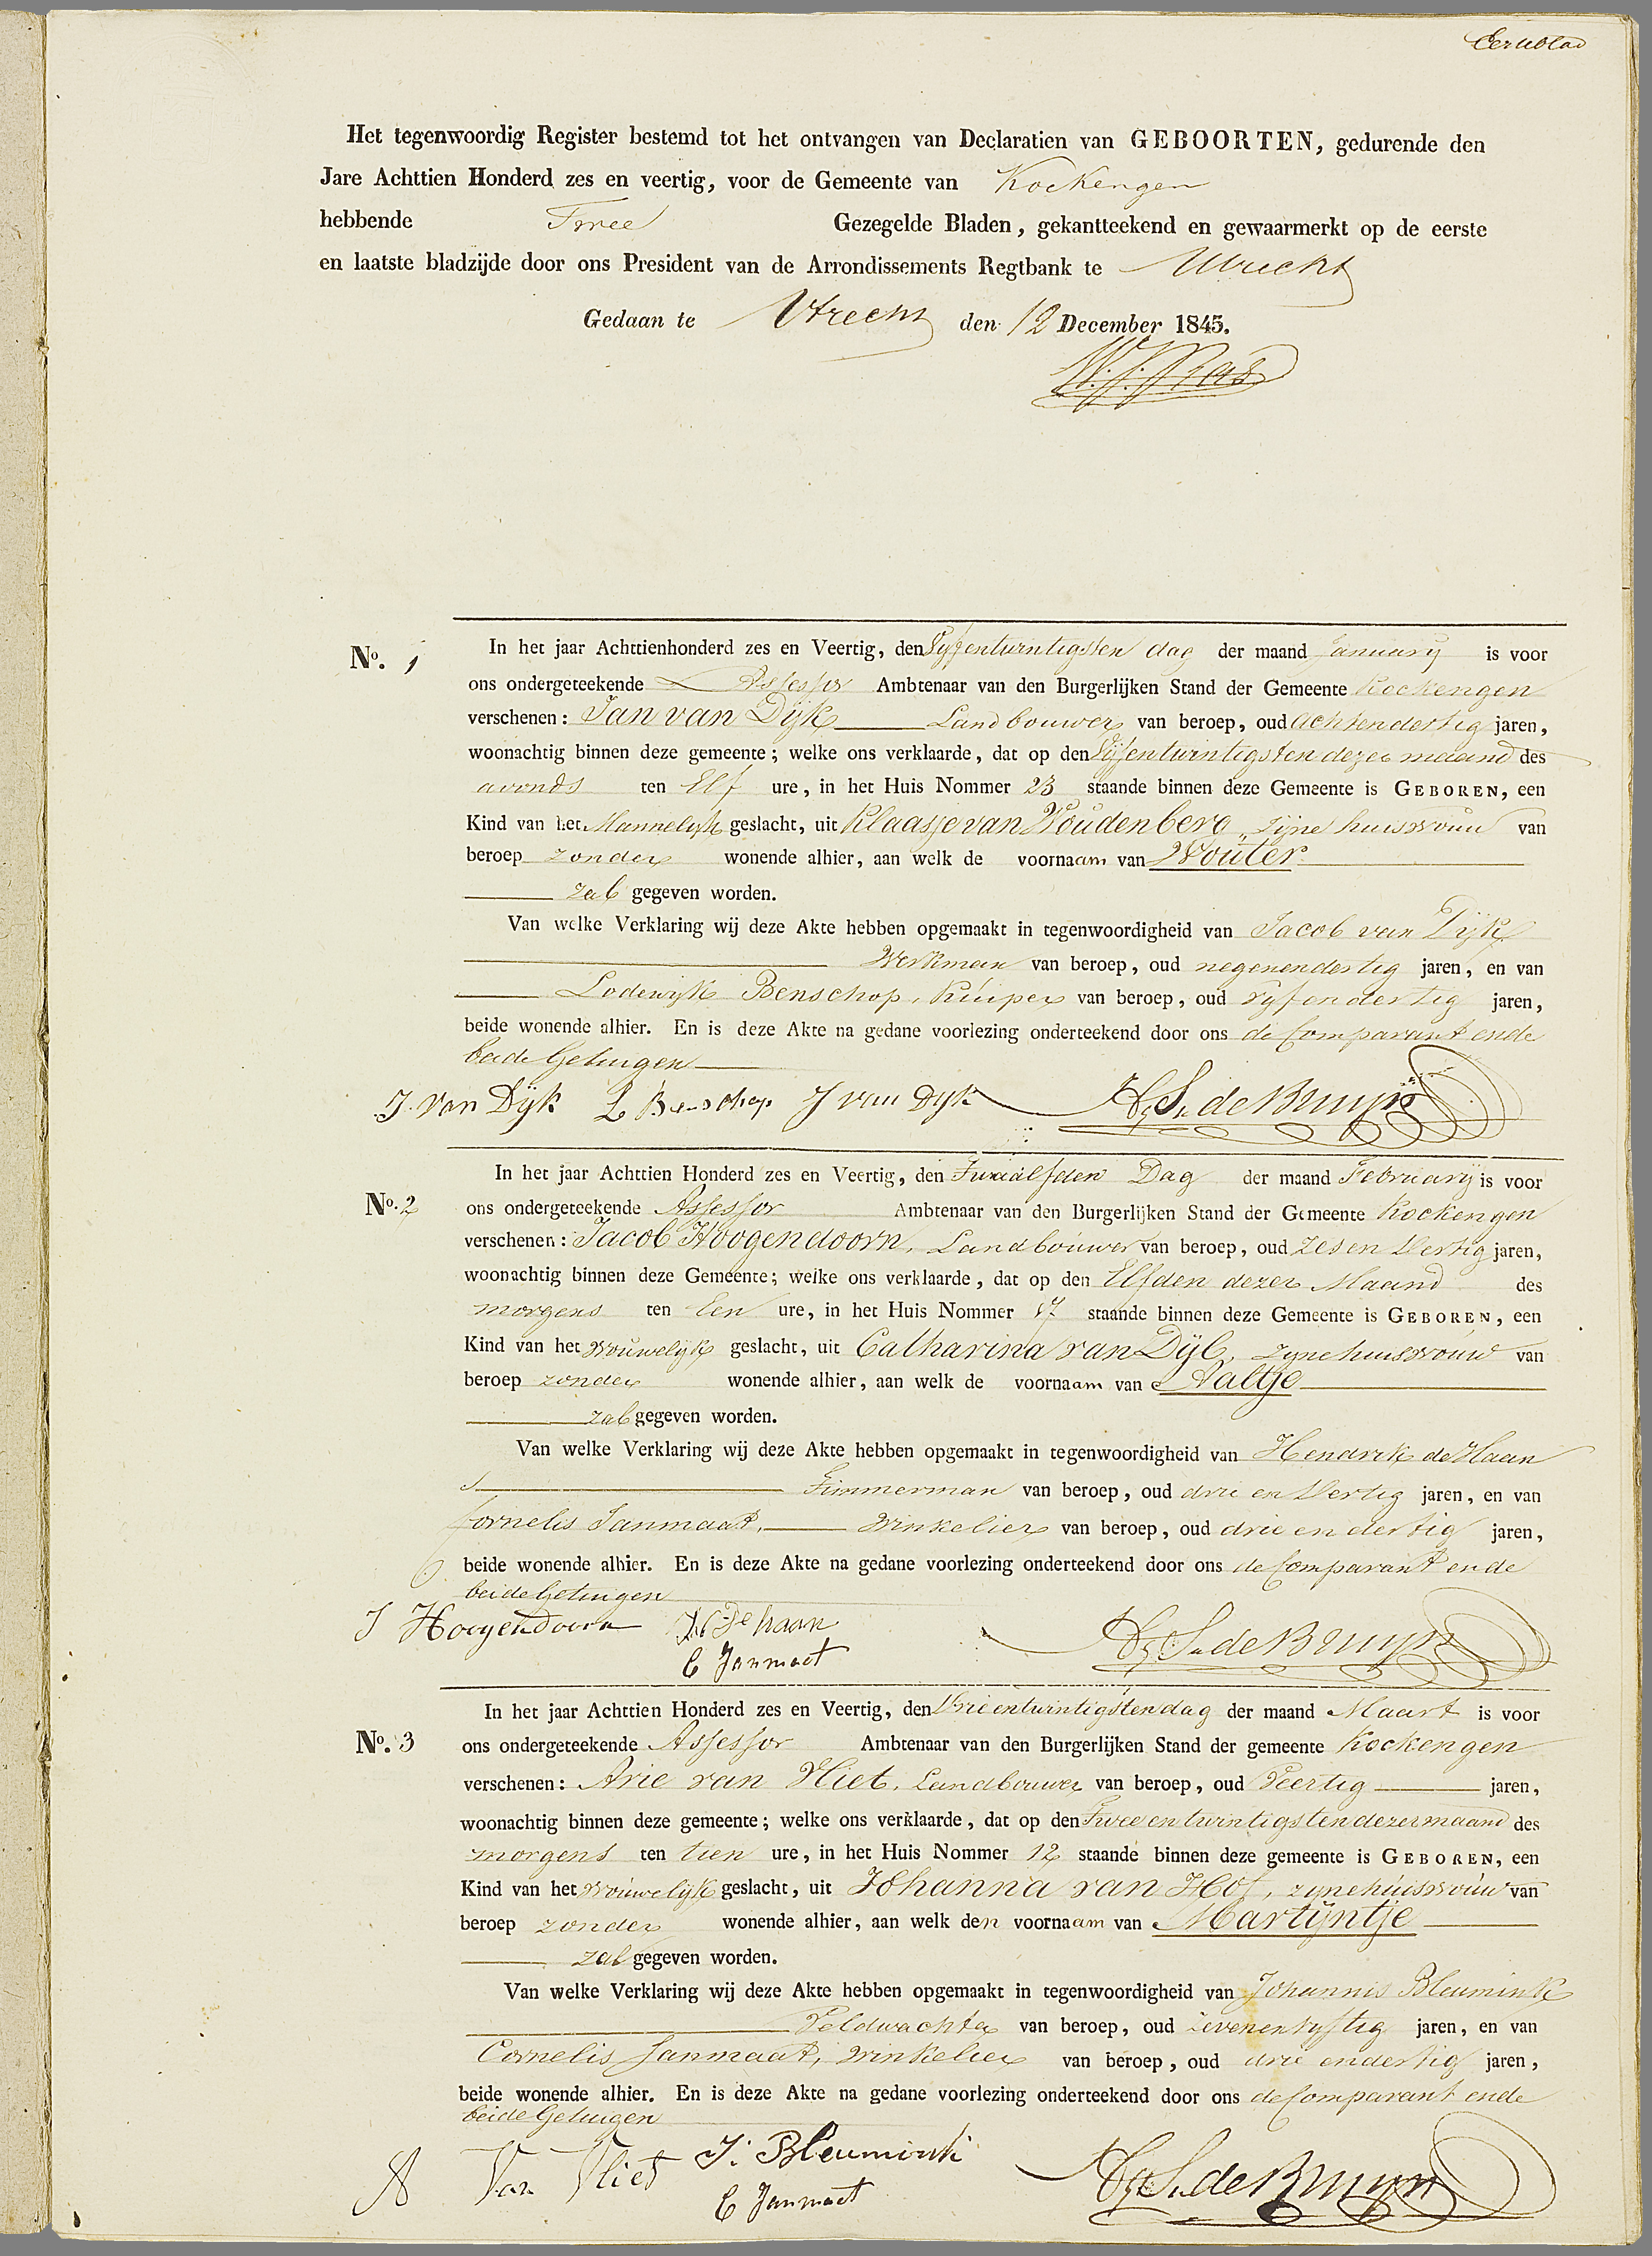 Eerste blad
Het tegenwoordig Register bestemd tot het ontvangen van Declaratien van GEBOORTEN, gedurende den
Jare Achttien Honderd zes en veertig, voor de Gemeente van Kockengen
hebbende Twee Gezegelde Bladen, gekantteekend en gewaarmerkt op de eerste
en laatste bladzijde door ons President van de Arrondissements Regtbank te Utrecht
Gedaan te Utrecht den 12 December 1845.
No. 1 In het jaar Achttienhonderd zes en Veertig, den Vyfentwintigsten dag der maand January is voor
ons ondergeteekende Assessor Ambtenaar van den Burgerlijken Stand der Gemeente Kockengen
verschenen: Jan van Dijk Landbouwer van beroep, oud achtendertig jaren,
woonachtig binnen deze gemeente; welke ons verklaarde, dat op den Vijfentwintigsten dezer maand des
avonds ten Elf ure, in het Huis Nommer 23 staande binnen deze Gemeente is GEBOREN, een
Kind van het Mannelijk geslacht, uit Klaasje van Woudenberg, zijne huisvrouw van
beroep zonder wonende alhier, aan welk de voornaam van Wouter
zal gegeven worden.
Van welke Verklaring wij deze Akte hebben opgemaakt in tegenwoordigheid van Jacob van Dijk
Werkman van beroep, oud negenendertig jaren, en van
Lodewijk Benschop, Kuiper van beroep, oud vyfendertig jaren,
beide wonende alhier. En is deze Akte na gedane voorlezing onderteekend door ons de Comparant ende
beide Getuigen
J. van Dijk L Benschop J van Dyk de Bruyn
No. 2 In het jaar Achttien Honderd zes en Veertig, den Twaalfden Dag der maand February is voor
ons ondergeteekende Assessor Ambtenaar van den Burgerlijken Stand der Gemeente Kockengen
verschenen: Jacob Hoogendoorn, Landbouwer van beroep, oud Zes en Dertig jaren,
woonachtig binnen deze Gemeente; welke ons verklaarde, dat op den Elfden dezer Maand des
morgens ten Een ure, in het Huis Nommer 17 staande binnen deze Gemeente is GEBOREN, een
Kind van het vrouwelijk geslacht, uit Catharina van Dijl, zyne huisvrouw van
beroep zonder wonende alhier, aan welk de voornaam van Aaltje
zal gegeven worden.
Van welke Verklaring wij deze Akte hebben opgemaakt in tegenwoordigheid van Hendrik de Haan
Timmerman van beroep, oud drie en Dertig jaren, en van
Cornelis Janmaat, Winkelier van beroep, oud drie en dertig jaren,
beide wonende alhier. En is deze Akte na gedane voorlezing onderteekend door ons de Comparant ende
beide Getuigen
J Hoogendoorn H De haan de Bruyn
C Janmaat
No. 3 In het jaar Achttien Honderd zes en Veertig, den Drieentwintigsten dag der maand Maart is voor
ons ondergeteekende Assessor Ambtenaar van den Burgerlijken Stand der gemeente Kockengen
verschenen: Arie van Vliet, Landbouwer van beroep, oud Veertig jaren,
woonachtig binnen deze gemeente; welke ons verklaarde, dat op den Tweeentwintigsten dezer maand des
morgens ten tien ure, in het Huis Nommer 12 staande binnen deze gemeente is GEBOREN, een
Kind van het vrouwelijk geslacht, uit Johanna van Hof, zyne huisvrouw van
beroep zonder wonende alhier, aan welk den voornaam van Martijntje
zal gegeven worden.
Van welke Verklaring wij deze Akte hebben opgemaakt in tegenwoordigheid van Johannis Bleumink
Veldwachter van beroep, oud zevenenvyftig jaren, en van
Cornelis Janmaat, winkelier van beroep, oud drie endertig jaren,
beide wonende alhier. En is deze Akte na gedane voorlezing onderteekend door ons de Comparant ende
beide Getuigen
A Van Vliet J. Bleumink de Bruyn
C Janmaat